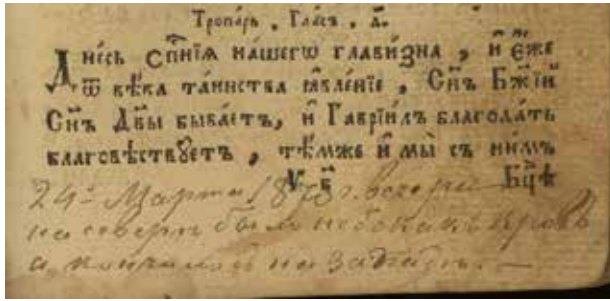 Тропарь, Гласъ, д҃.
Дне́сь сп҃нїѧ на́шегѡ глави́зна, и҆ є҆́же
ѿ вѣ́ка та́инства ꙗ҆вле́нїе, Сн҃ъ Бж҃їй
Сн҃ъ Дв҃ы быва́етъ, и҆ Гаврїи́лъ благода́ть
благовѣ́ствꙋетъ, тѣ́мже и҆ мы̀ съ ни́мъ
Бц҃ѣ
24 Марта 187 г. вечером
на северѣ было небо какъ кровь
а кончилось на западѣ. —